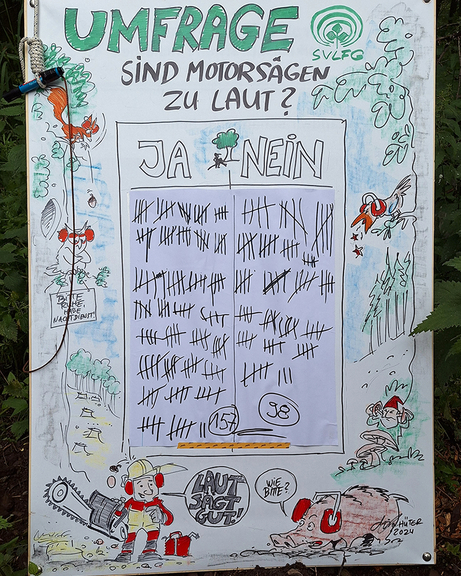 UMFRAGE
SVLFG
SIND MOTORSÄGEN
ZU LAUT?
JA NEIN
BITTE
RUHE,
HABE
NACHTDIENST!
157
98
LAUT
SÄGT
GUT!
WIE
BITTE?
HÜTER
2024